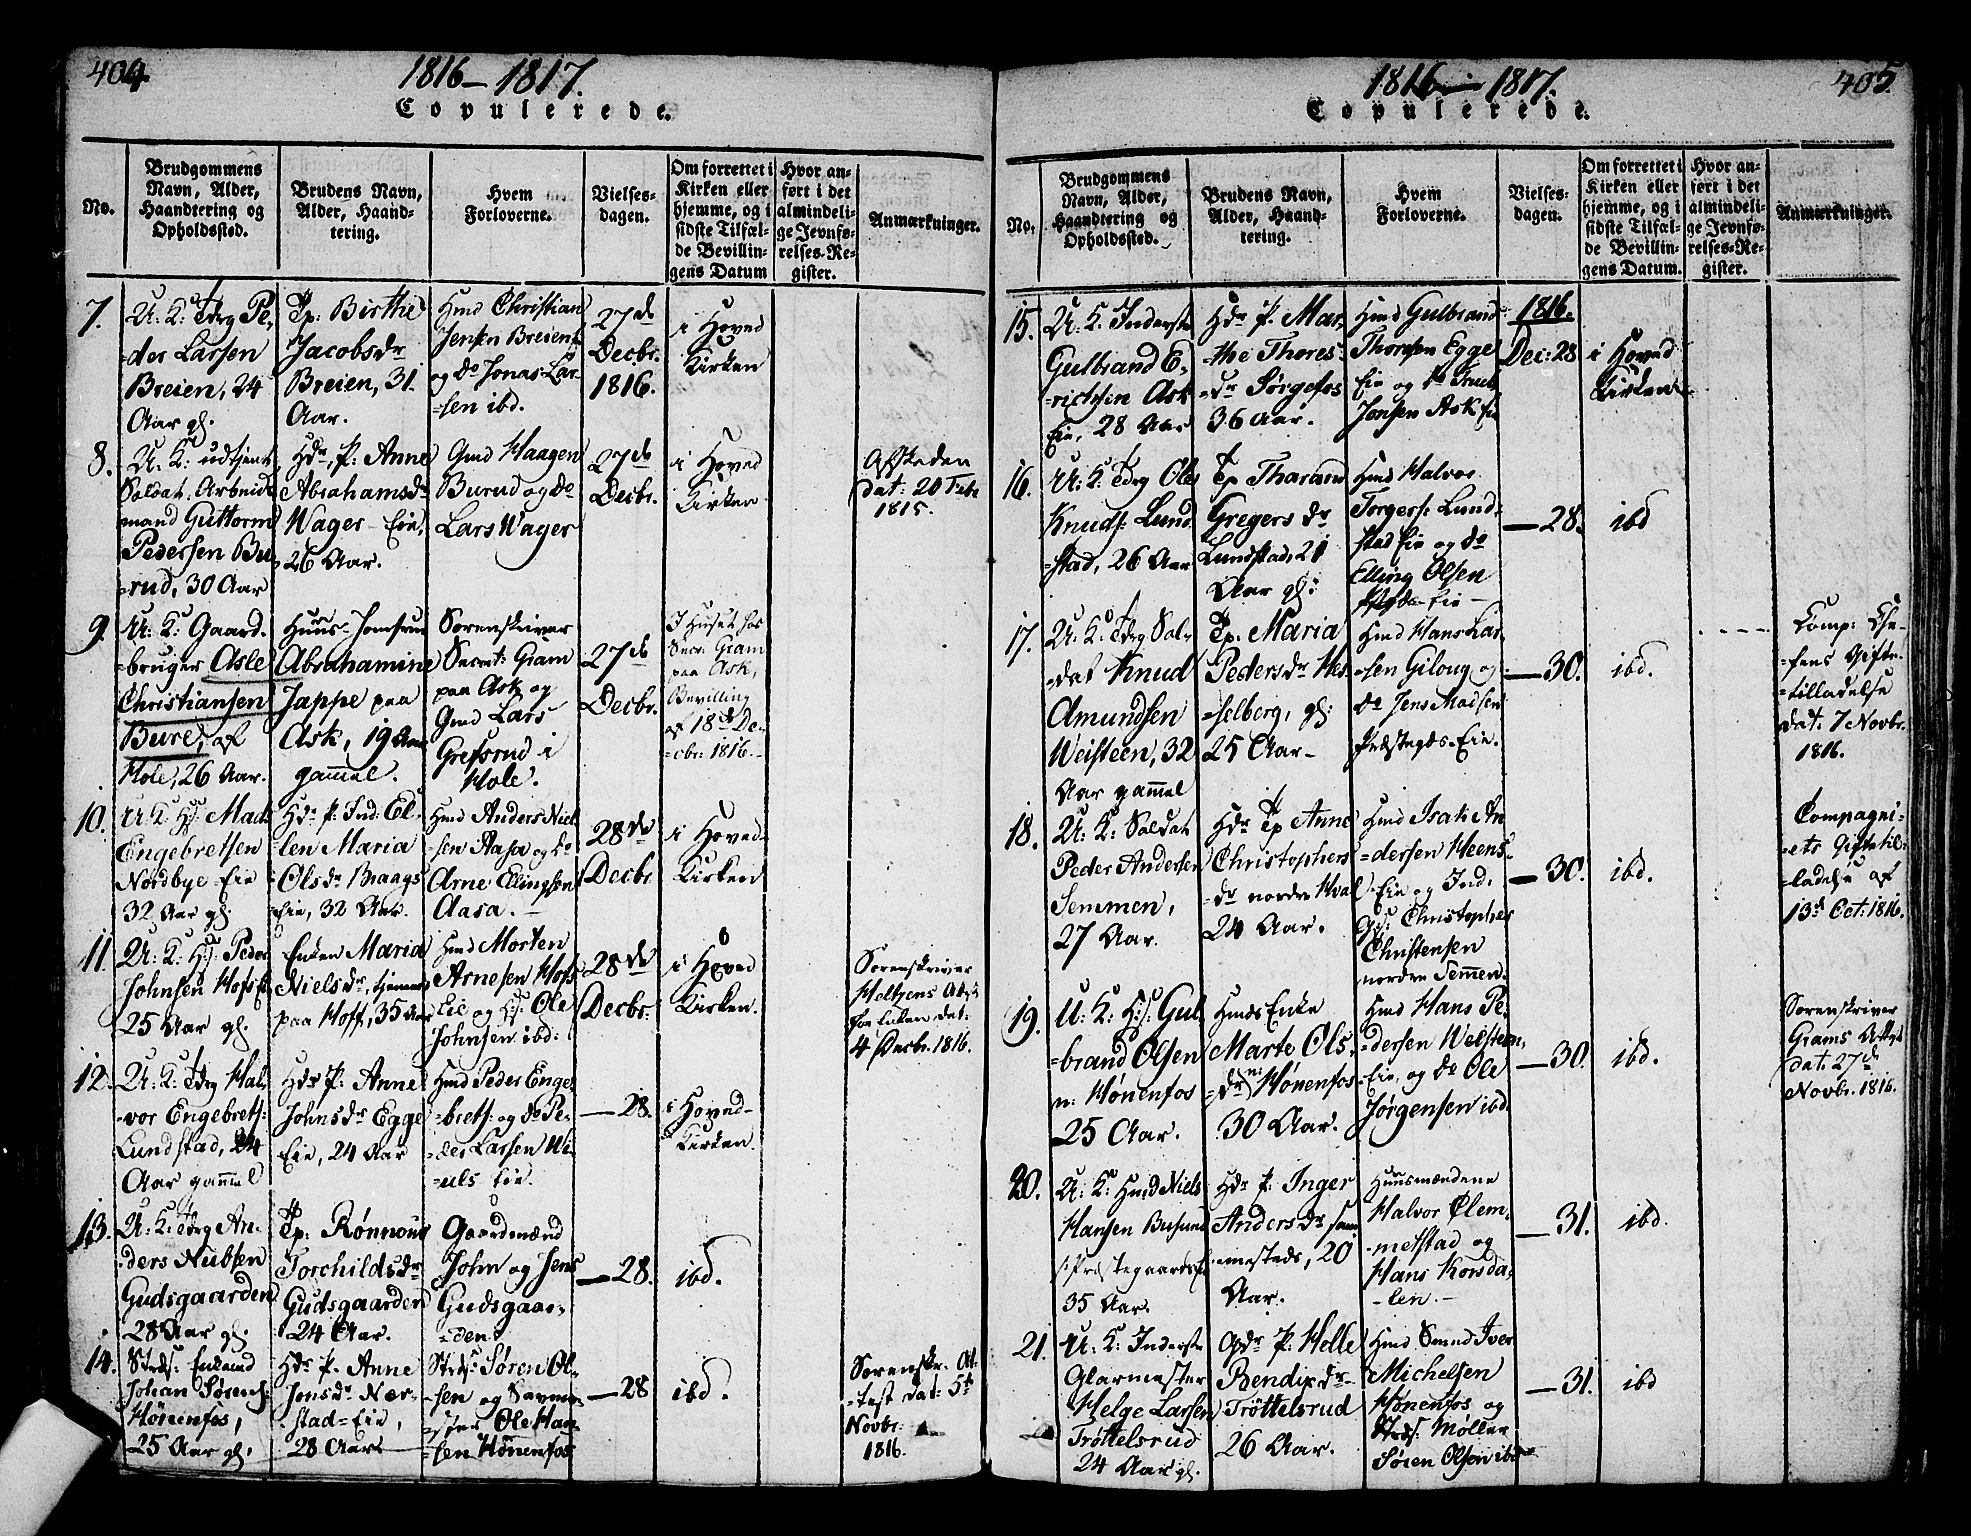 404.
1816 – 1817.
Copulerede.
No.
Brudgommens
Navn, Alder,
Haandtering og
Opholdssted.
Brudens Navn,
Alder, Haand-
tering.
Hvem
Forloverne.
Vielses-
dagen.
Om forrettet i
Kirken eller
hjemme, og i
sidste Tilfæl-
de Bevillin-
gens Datum
Hvor an-
ført i det
almindeli-
ge Jevnfø-
relses-Re-
gister.
Anmærkninger.
7.
U: K: Tdrg Pe-
=der Larsen
Breien, 24
Aar gl.
Tp: Birthe
Jacobsdr
Breien, 31.
Aar.
Hmd Christian
Jensen Breiens
og do Jonas Lar-
=sen ibd.
27de
Decbr.
1816.
i Hoved
Kirken
8.
U: K: udtjent
Soldat, Arbeids
mand Guttorm
Pedersen Bu-
=rud, 30 Aar
Hdr, P: Anne
Abrahamsdr
Wager Eie,
26 Aar.
Gmd Haagen
Burud og do
Lars Wager
27de
Decbr.
i Hoved
Kirken
Afskeden
dat: 20 Febr
1815.
9.
U: K: Gaard-
=bruger Asle
Christiansen
Bure, af
Hole, 26 Aar.
Huus-Jomfrue
Abrahamine
Jappe paa
Ask, 19 Aar
gammel.
Sorenskriver
Secret: Gram
paa Ask og
Gmd Lars
Gressrud i
Hole.
27de
Decbr.
I Huset hos
Secr: Gram
paa Ask,
Bevilling
af 18de De-
=cbr. 1816.
10.
U: K: Hs: Mads
Engebretsen
Nordbye Eie
32 Aar gl.
Hdr P: Ind: El-
len Maria
Olsdr Braags
Eie, 32 Aar.
Hmd Anders Niel
sen Aasa og do
Arne Elingsen
Aasa.
28de
Decbr
i Hoved-
Kirken
11.
U: K: Hs: Peder
Johnsen Hofs E.
25 Aar gl.
Enken Maria
Nielsdr, tjenende
paa Hoff, 35 Aar
Hmd Morten
Arnesen Hofs
Eie og Hs: Ole
Johnsen ibd:
28de
Decbr.
i Hoved
Kirken.
Sorenskriver
Heltzens Attest
for Enken dat:
4 Decbr. 1816.
12.
U: K: Tdrg Hal-
vor Engebrets:
Lundstad, 24
Aar gammel
Hdr P: Anne
Johnsdr Egge
Eie, 24 Aar
Hmd Peder Enge-
=brets: og do Pe-
der Larsen Wi-
=uls Eie.
— 28.
i Hoved-
Kirken.
13.
U: K: Tdrg An-
ders Nubsen
Gudsgaarden
28 Aar gl.
Tp: Rønnoug
Torchildsdr
Gudsgaarden
24 Aar.
Gaardmænd
John og Jens
Gudsgaar-
=den.
— 28.
ibd.
14.
Strds: Enkemd
Johan Sørens:
Hønenfos,
25 Aar gl.
Hdr P: Anne
Jonsdr Nær-
stad=Eie,
28 Aar
Strds: Søren Ol-
sen og
Ole Han
=sen Hønenfos
— 28
ibd.
Sorenskr. At-
=test dat: 5te
Novbr.
1816.
405.
1816 – 1817.
Copulerede.
No.
Brudgommens
Navn, Alder,
Haandtering og
Opholdssted.
Brudens Navn,
Alder, Haand-
tering.
Hvem
Forloverne.
Vielses-
dagen.
Om forrettet i
Kirken eller
hjemme, og i
sidste Tilfæl-
de Bevillin-
gens Datum.
Hvor an-
ført i det
almindeli-
ge Jevnfø-
relses-Re-
gister.
Anmærkninger.
15.
U: K. Inderste
Gulbrand E-
=richsen Ask
Eie, 28 Aar
Hdr P. Mar-
the Thores-
dr Sørgefos
36 Aar.
Hmd Gulbrand
Thoresen Egge
Eie og do Knud
Jonsen Ask Eie
1816.
Dec: 28
i Hoved
Kirken
16.
U: K: Tdrg Ole
Knuds: Lund
=stad, 26 Aar
Tp Tharand
Gregersdr
Lundstad, 21
Aar gl:
Hmd Halvor
Torgers: Lund-
stad Eie og do
Elling Olsen
— 28.
ibd
17.
U: K: Tdrg Sol-
=dat Knud
Amundsen
Weisteen, 32
Aar gammel
Tp: Maria
Pedersdr Hes-
=selberg, gl:
25 Aar
Hmd Hans Lar-
sen Giloug og
do Jens Madsen
Præstegds-Eie.
— 30.
ibd.
Comp: Che-
=fens Gifte-
=tilladelse
dat: 7 Novbr.
1816.
18.
U: K: Soldat
Peder Andersen
Semmen,
27 Aar.
Hdr Tp Anne
Christophers
=dr nordre Hval
24 Aar.
Hmd Isak An
=dersen Heens-
Eie og Ind:
Gs: Christopher
Christensen
nordre Semmen.
— 30.
ibd.
Compagni-
ets Giftetil-
=ladelse af
13de Oct: 1816.
19.
U: K: Hs: Gul
=brand Olsen
n: Hønenfos
25 Aar.
Hmds Enke
Marte Ols-
=dr n: Hønenfos
30 Aar.
Hmd Hans Pe-
=dersen Welsteen,
Eie, og do Ole
Jørgensen ibd.
— 30.
ibd.
Sorenskriver
Grams Attest
dat: 27de
Novbr. 1816.
20.
U: K: Hmd Niels
Hansen Busund
Præstegaards E.
35 Aar.
Hdr P: Inger
Andersdr sam
=mesteds, 20
Aar.
Huusmændene
Halvor Ølem-
=melstad og
Hans Korsda-
=len.
— 31.
ibd.
21.
U: K: Inderste
Glarmester
Helge Larsen
Trøttelsrud
24 Aar gl.
Gdr P: Helle
Bendixdr
Trøttelsrud
26 Aar.
Hmd Smed Iver
Michelsen
Hønenfos og
Strds: Møller
Søren Olsen ibd
— 31.
ibd